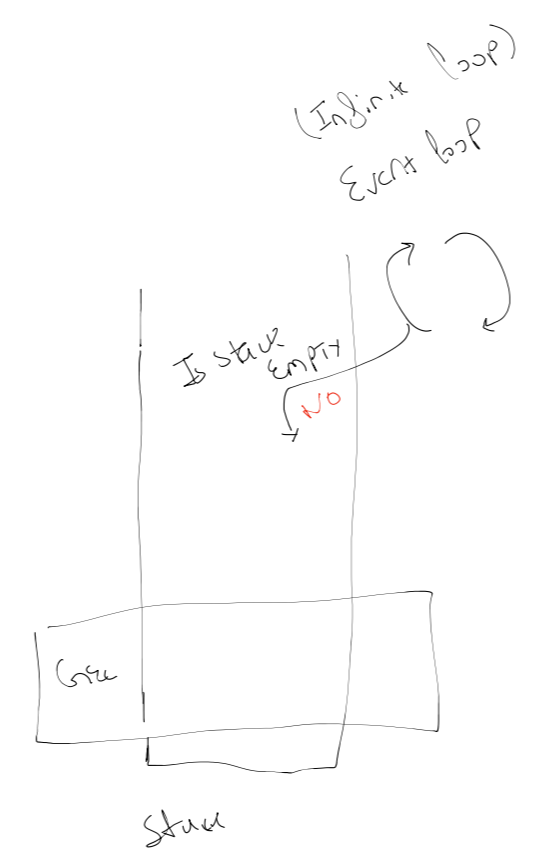 (Infinite loop)
Event loop
Is stack
Empty
NO
Stack